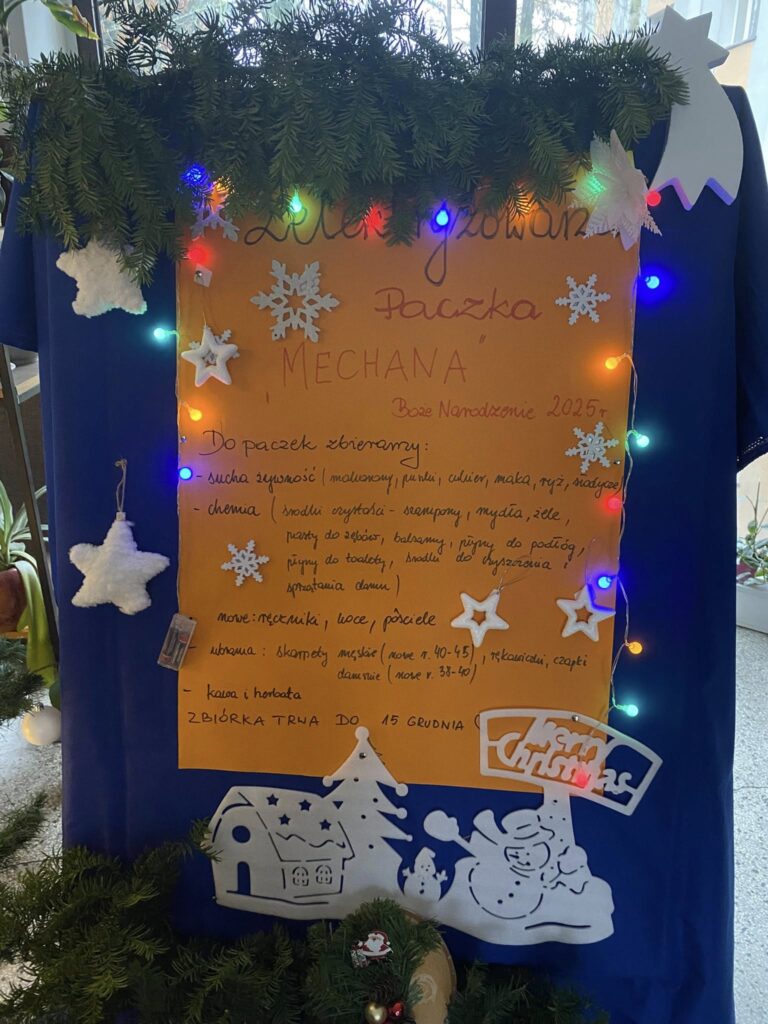 Zelektryzowana
Paczka
"MECHANA"
Boże Narodzenie 2025r
Do paczek zbieramy:
- sucha żywność (makarony, puszki, cukier, mąka, ryż, słodycze
- chemia (środki czystości - szampony, mydła, żele,
pasty do zębów, balsamy, płyny do podłóg,
płyny do toalety, środki do czyszczenia i
sprzątania domu)
nowe: ręczniki, koce, pościele
- ubrania: skarpety męskie (nowe r. 40-45), rękawiczki, czapki
damskie (nowe r. 38-40)
- kawa i herbata
ZBIÓRKA TRWA DO 15 GRUDNIA
Merry
Christmas